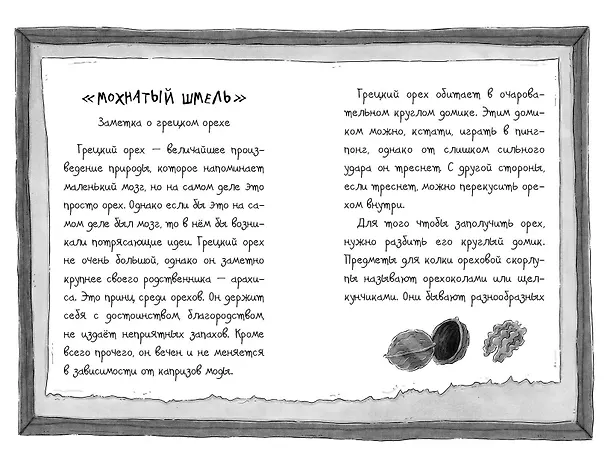 «МОХНАТЫЙ ШМЕЛЬ»
Заметка о грецком орехе
Грецкий орех — величайшее произ-
ведение природы, которое напоминает
маленький мозг, но на самом деле это
просто орех. Однако если бы это на са-
мом деле был мозг, то в нём бы возни-
кали потрясающие идеи. Грецкий орех
не очень большой, однако он заметно
крупнее своего родственника — арахи-
са. Это принц среди орехов. Он держит
себя с достоинством благородством
не издаёт неприятных запахов. Кроме
всего прочего, он вечен и не меняется
в зависимости от капризов моды.
Грецкий орех обитает в очарова-
тельном круглом домике. Этим доми-
ком можно, кстати, играть в пинг-
понг, однако от слишком сильного
удара он треснет. С другой стороны,
если треснет, можно перекусить оре-
хом внутри.
Для того чтобы заполучить орех,
нужно разбить его круглый домик.
Предметы для колки ореховой скорлу-
пы называют орехоколами или щел-
кунчиками. Они бывают разнообразных